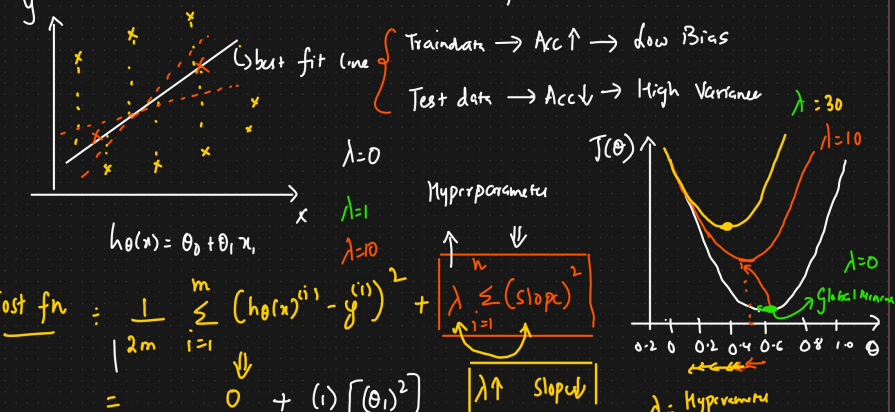 y
best fit line
Traindata → Acc ↑ → Low Bias
Test data → Acc ↓ → High Variance
x
hθ(x) = θ0 + θ1 x1
λ=0
λ=1
λ=10
Hyperparameter
ost fn = 1/2m Σ i=1 m (hθ(x)^(i) - y^(i))^2 + λ Σ i=1 n (slope)^2
λ↑ Slope↓
= 0 + (1) [(θ1)^2]
J(θ)
λ = 30
λ=10
λ=0
Global Minima
0.2 0 0.2 0.4 0.6 0.8 1.0 θ
λ = Hyperparameter